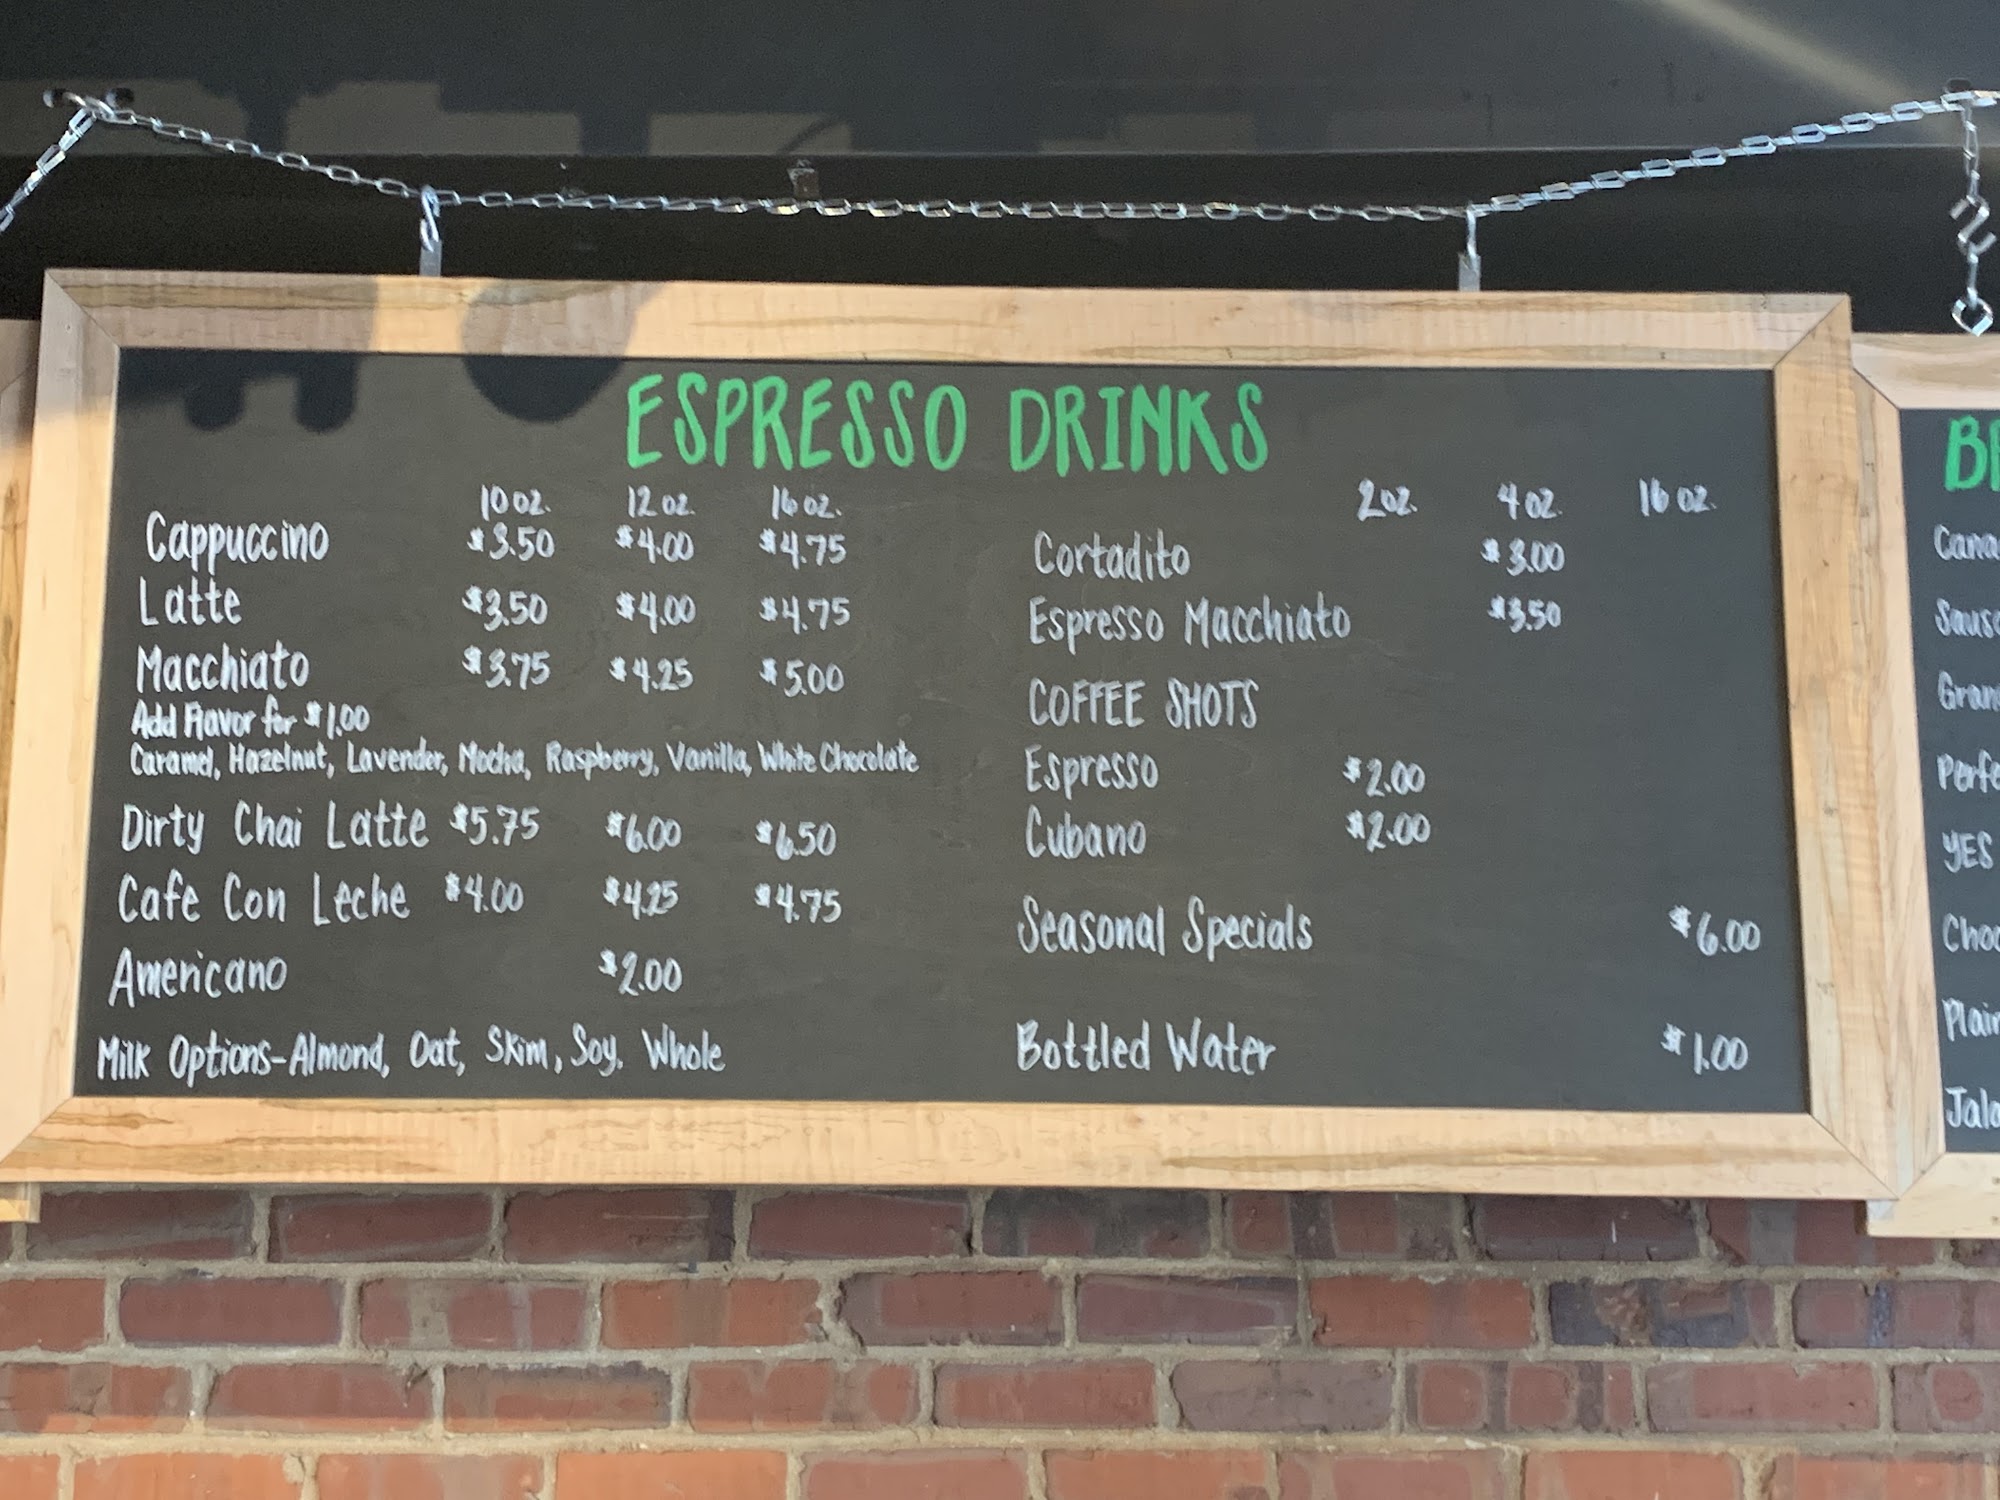 ESPRESSO DRINKS
10 oz. 12 oz. 16 oz.
Cappuccino $3.50 $4.00 $4.75
Latte $3.50 $4.00 $4.75
Macchiato $3.75 $4.25 $5.00
Add Flavor for $1.00
Caramel, Hazelnut, Lavender, Mocha, Raspberry, Vanilla, White Chocolate
Dirty Chai Latte $5.75 $6.00 $6.50
Cafe Con Leche $4.00 $4.25 $4.75
Americano $2.00
Milk Options-Almond, Oat, Skim, Soy, Whole
2 oz. 4 oz. 16 oz.
Cortadito $3.00
Espresso Macchiato $3.50
COFFEE SHOTS
Espresso $2.00
Cubano $2.00
Seasonal Specials $6.00
Bottled Water $1.00
YES